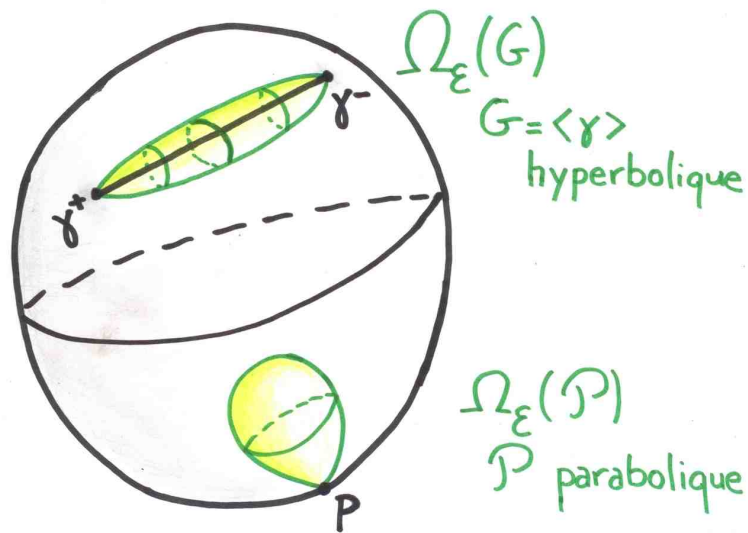 Ω_ε(G)
G=<γ>
hyperbolique
γ⁻
γ⁺
Ω_ε(𝒫)
𝒫 parabolique
P